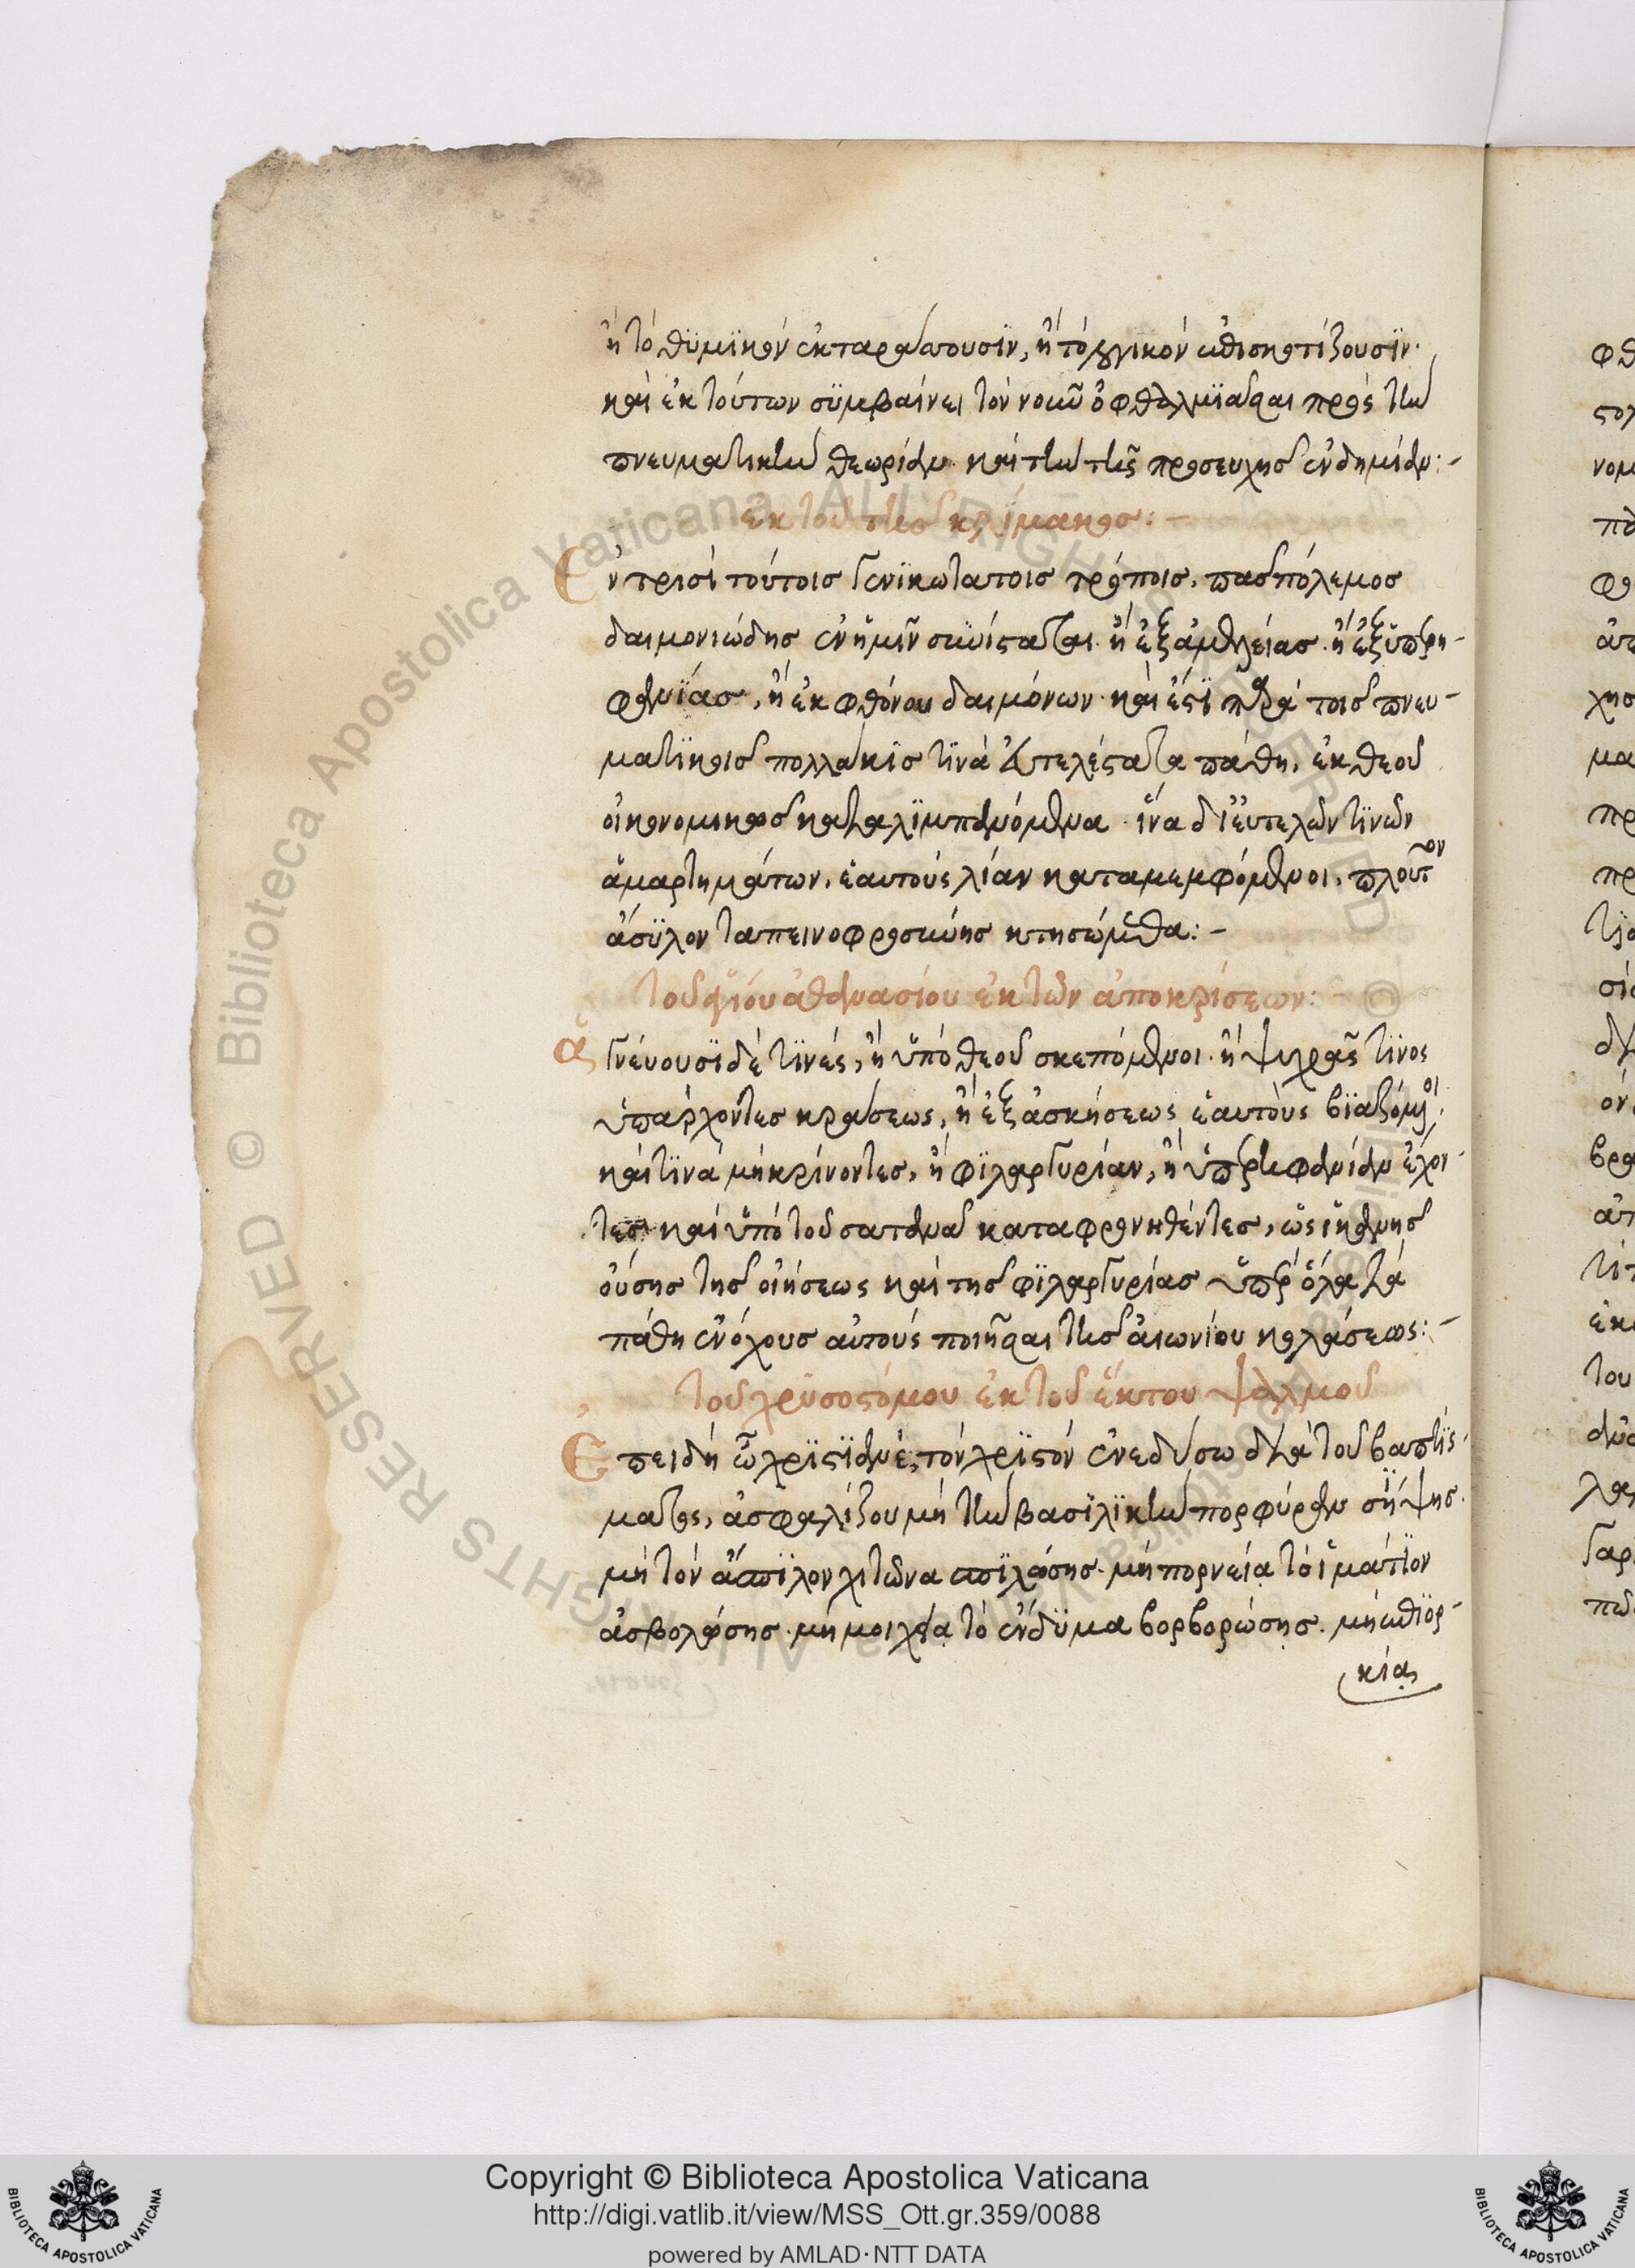 ἢ τὸ θϋμϊκὸν ἐκταράττουσϊν, ἢ τὸ λογικὸν ἐπισκοτίζουσϊν·
καὶ ἐκ τούτων σϋμβαίνει τὸν νοῦν ὀφθαλμϊᾶσαι πρὸς τὴν
πνευματικὴν θεωρίαν· καὶ τὴν τῆς προσευχῆς ἐνδημίαν:-
ἐκ τοῦ τῆς κλίμακος:-
Ἐν τρισὶ τούτοις γενϊκωτάτοις τρόποις, πᾶς πόλεμος
δαιμονιώδης ἐν ἡμῖν συνίσταται· ἢ ἐξ ἀμελείας· ἢ ἐξ ὑπερη-
φανϊας, ἢ ἐκ φθόνου δαιμόνων· καὶ ἐστϊ παρὰ τοῖς πνευ-
ματϊκοῖς πολλάκϊς τϊνὰ εὐτελέστατα πάθη, ἐκ θεοῦ
οἰκονομικῶς καταλϊμπανόμενα· ἵνα δι' εὐτελῶν τϊνῶν
ἁμαρτημάτων, ἑαυτοὺς λίαν καταμεμφόμενοι, πλοῦτον
ἄσϋλον ταπεινοφροσύνης κτησώμεθα:-
τοῦ ἁγίου ἀθανασίου ἐκ τῶν ἀποκρίσεων:-
Ἁγνεύουσϊ δέ τϊνές, ἢ ὑπὸ θεοῦ σκεπόμενοι· ἢ ψυχρᾶς τϊνος
ὑπάρχοντες κράσεως, ἢ ἐξ ἀσκήσεως ἑαυτοὺς βϊαζόμενοι,
καὶ τϊνὰ μὴ κρίνοντες, ἢ φϊλαργυρίαν, ἢ ὑπερηφανίαν ἔχον-
τες· καὶ ὑπὸ τοῦ σατανᾶ καταφρονηθέντες, ὡς ἱκανῆς
οὔσης τῆς οἰήσεως καὶ τῆς φϊλαργυρίας ὑπὲρ ὅλα τὰ
πάθη ἐνόχους αὐτοὺς ποιῆσαι τῆς αἰωνίου κολάσεως:-
τοῦ χρϋσοστόμου ἐκ τοῦ ἕκτου ψαλμοῦ
Ἐπειδὴ ὦ χρϊστϊανὲ, τὸν χρϊστὸν ἐνεδύσω διὰ τοῦ βαπτϊσ-
ματος, ἀσφαλίζου μὴ τὴν βασϊλϊκὴν πορφύραν σήψης·
μὴ τὸν ἄσπϊλον χιτῶνα σπϊλώσης· μὴ πορνείᾳ τὸ ἱμάτϊον
ἀσβολώσης· μὴ μοιχείᾳ τὸ ἔνδϋμα βορβορώσης· μὴ ἐπϊορ-
κίᾳ
Copyright © Biblioteca Apostolica Vaticana
http://digi.vatlib.it/view/MSS_Ott.gr.359/0088
powered by AMLAD·NTT DATA